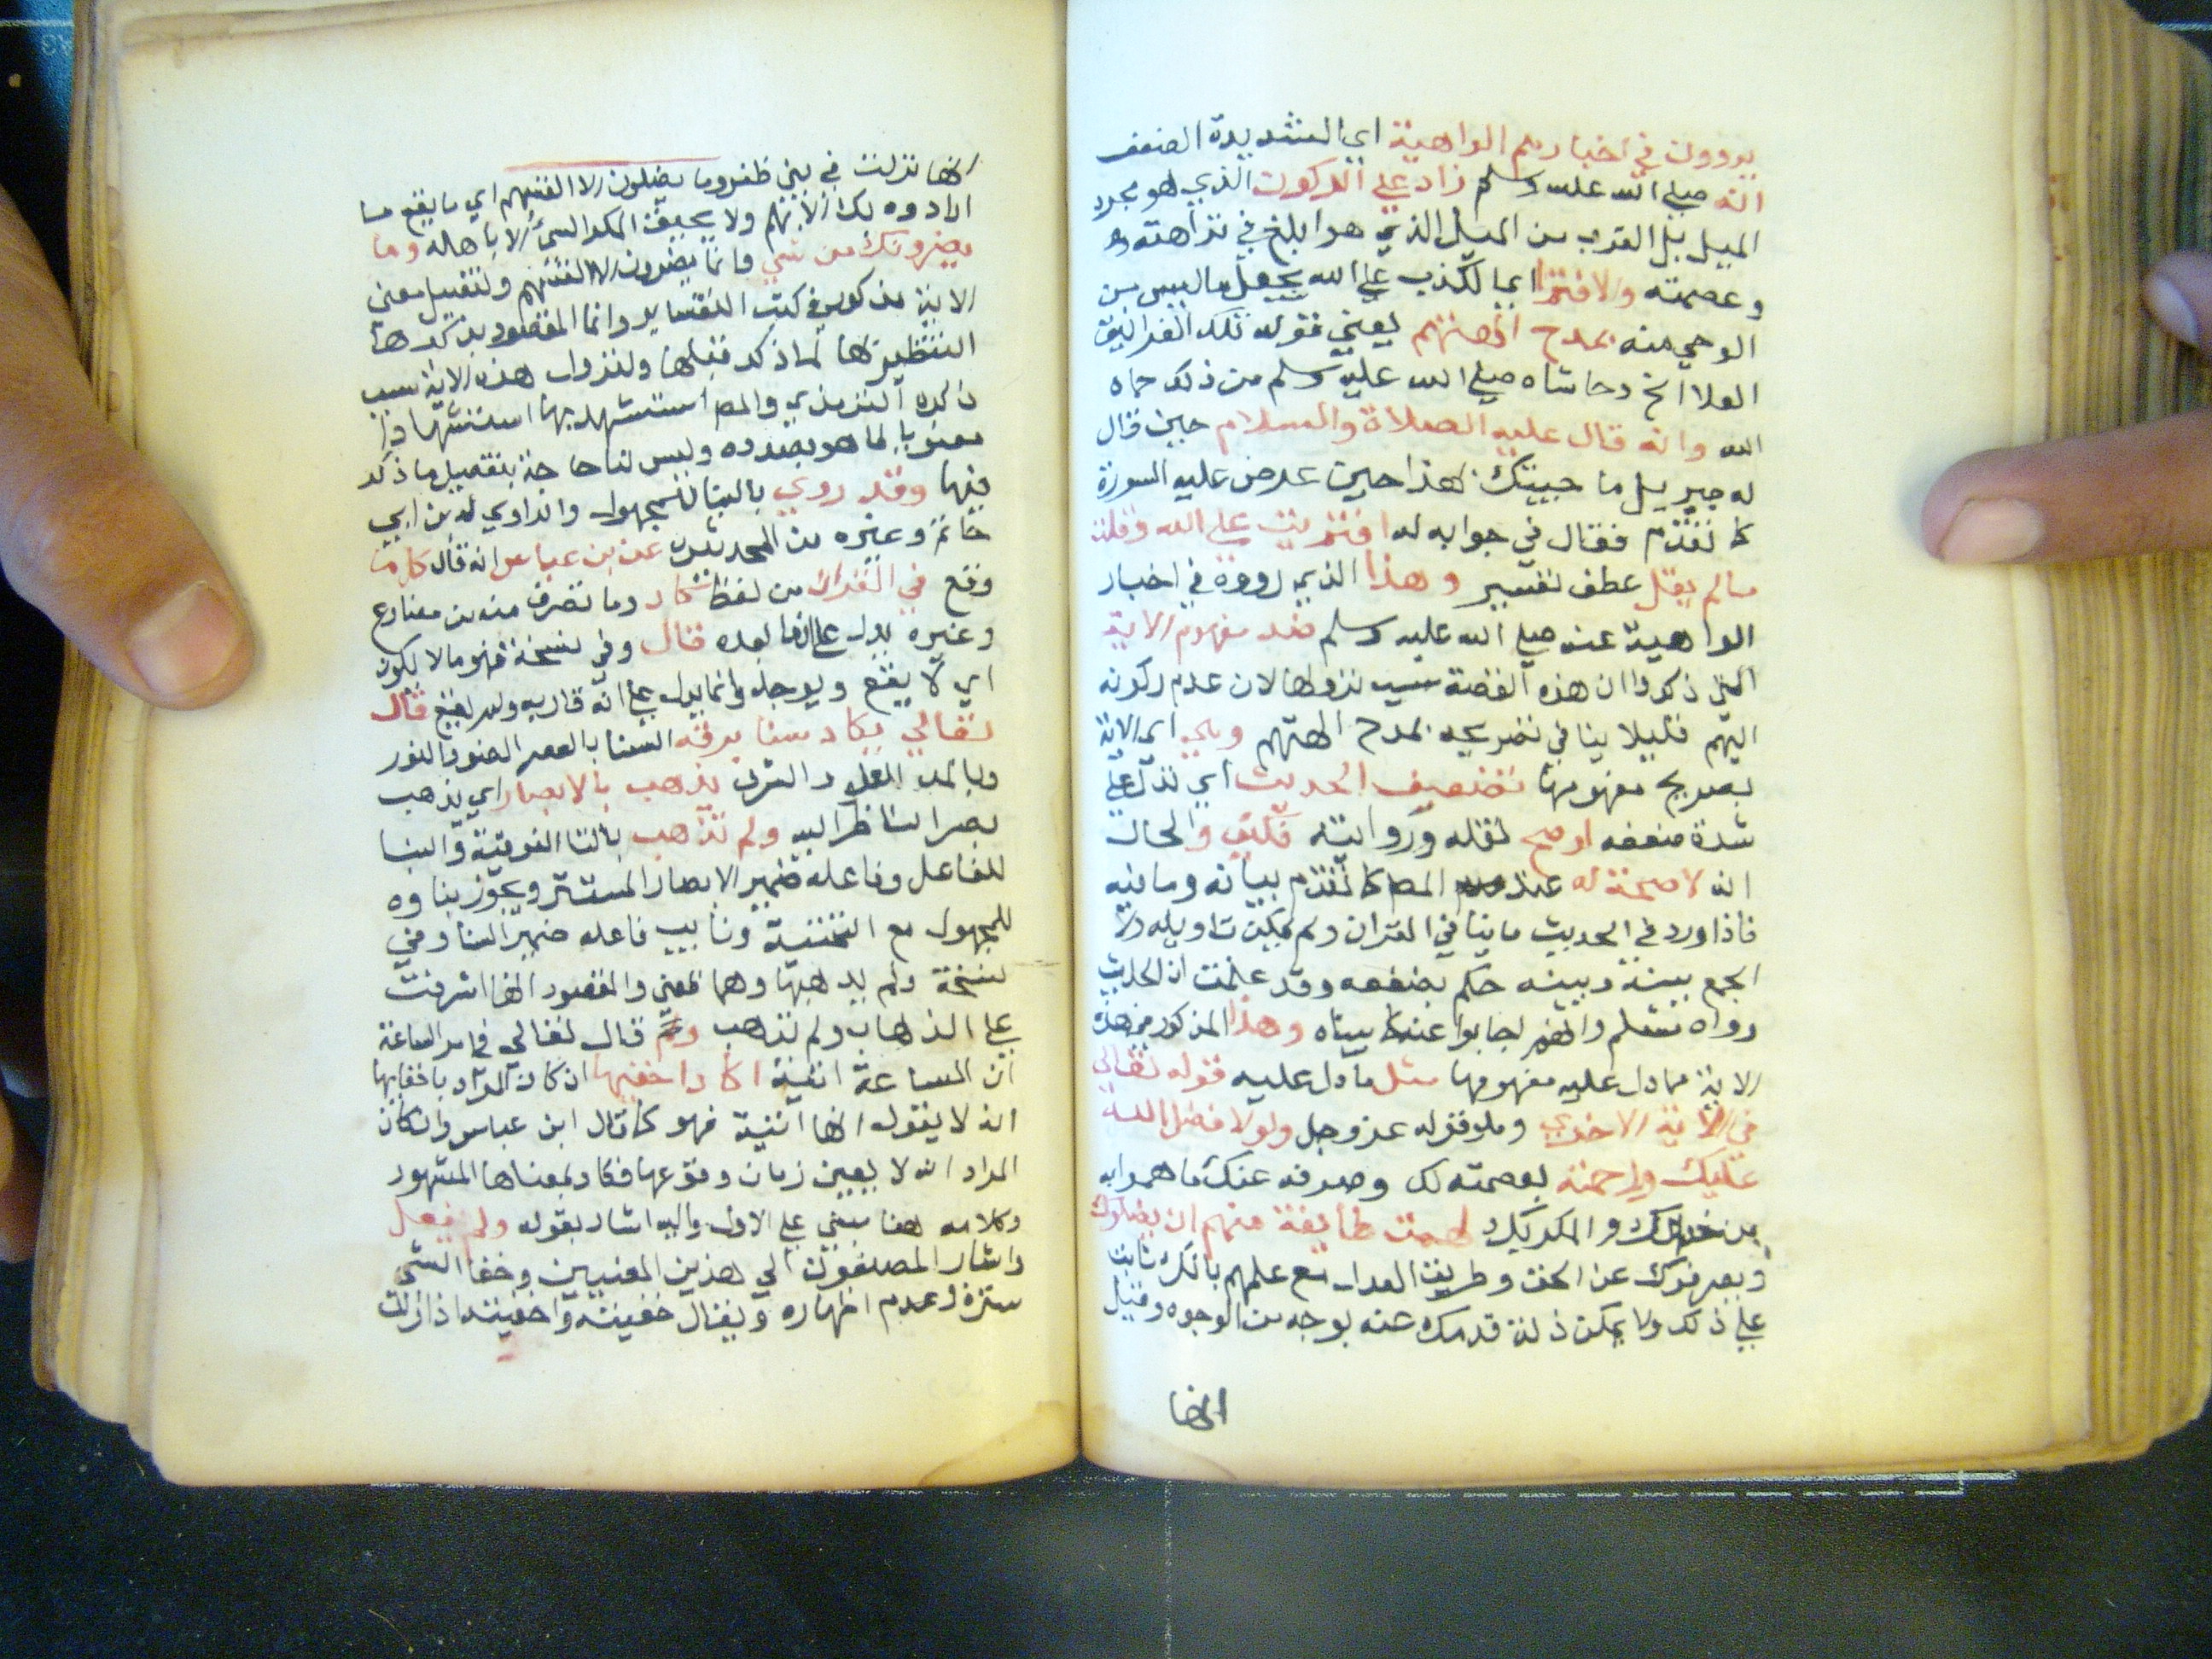 يروون في اخبارهم الواهية اي الشديدة الضعف
انه صلى الله عليه وسلم زاد على الركون الذي هو مجرد
الميل بل القرب من الميل الذي هو ابلغ في نزاهته
وعصمته والافترا اي الكذب على الله بجعل ما ليس من
الوحي منه بمدح الهتهم يعني قوله تلك الغرانيق
العلا الخ وحاشاه صلى الله عليه وسلم من ذلك حماه
الله وانه قال عليه الصلاة والسلام حين قال
له جبريل ما جيتك بهذا حين عرض عليه السورة
كما تقدم فقال في جوابه له افتريت على الله وقلت
ما لم يقل عطف تفسير وهذا الذي رووه في اخبار
الواهية عنه صلى الله عليه وسلم ضد مفهوم الاية
التي ذكروا ان هذه القصة سبب نزولها لان عدم ركونه
اليهم قليلا ينافي تصريحه بمدح الهتهم وهي اي الاية
بصريح مفهومها تضعيف الحديث اي تدل على
شدة ضعفه لو صح نقله وروايته فكيف والحال
انه لا صحة له عند المص كما تقدم بيانه وما فيه
فاذا ورد في الحديث ما ينافي القران ولم يمكن تاويله ولا
الجمع بينه وبينه حكم بضعفه وقد علمت ان الحديث
رواه وانهم اجابوا عنه كما بيناه وهذا المذكور من هذه
الاية مما دل عليه مفهومها مثل ما دل عليه قوله تعالى
في الاية الاخرى وهو قوله عز وجل ولولا فضل الله
عليك ورحمته بعصمته لك وصرفه عنك ما هموا به
من والمكر بك لهمت طايفة منهم ان يضلوك
ويصرفوك عن الحق وطريق العدل مع علمهم بانك ثابت
على ذلك ولا يمكن زلة قدمك عنه بوجه من الوجوه وقيل
انها
انها نزلت في بني ظفر وما يضلون الا انفسهم اي ما يقع ما
ارادوه بك الا بهم ولا يحيق المكر السيئ الا باهله وما
يضرونك من شي وانما يضرون الا انفسهم وتفصيل معنى
الاية مذكور في كتب التفاسير وانما المقصود بذكرها
التنظير لها لما ذكر قبلها ولنزول هذه الاية سبب
ذكره الترمذي والمص استشهد بها استشهادا
معنويا لما هو بصدده وليس لنا حاجة بتفصيل ما ذكر
فيها وقد روي بالبنا للمجهول والراوي له بن ابي
حاتم وغيره من المحدثين عن بن عباس انه قال كل ما
وقع في القران من لفظ كاد وما تصرف منه من مضارع
وغيره يدل على ما بعده قال وفي نسخة فهو ما لا يكون
اي لا يقع ويوجد وانما يدل على انه قاربه ولم يقع قال
تعالى يكاد سنا برقه السنا بالقصر الضو والنور
وبالمد العلو والشرف يذهب بالابصار اي يذهب
بصر الناظر اليه ولم تذهب بالتا الفوقية والبنا
للفاعل وفاعله ضمير الابصار المستتر ويجوز بناوه
للمجهول مع التحتية ونايب فاعله ضمير السنا وفي
نسخة ولم يذهبها وهما بمعنى والمقصود انها اشرفت
على الذهاب ولم تذهب قال تعالى في امر الساعة
ان الساعة اتية اكاد اخفيها ان كان المراد باخفايها
انه لا يقول انها اتية فهو كما قال ابن عباس وان كان
المراد انه لا يعين زمان وقوعها فكاد بمعناها المشهور
وكلامه هنا مبني على الاول واليه اشار بقوله ولم يفعل
واشار المصنفون الى هذين المعنيين وخفا الشي
ستره وعدم اظهاره ويقال خفيته واخفيته اذا ازلت